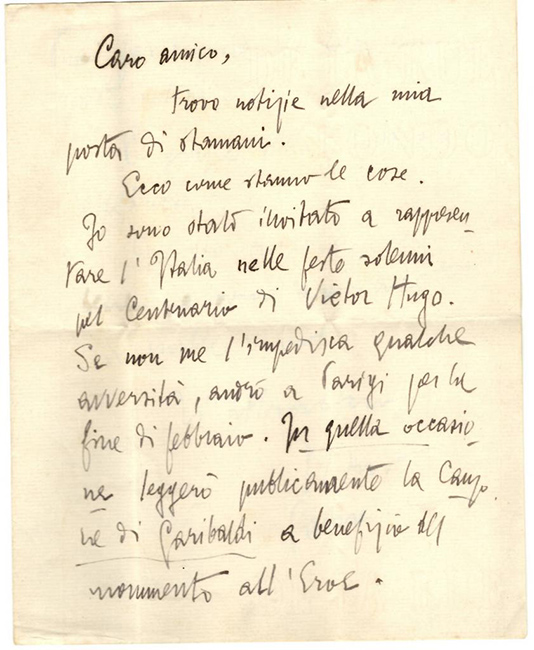 Caro amico,
trovo notizie nella mia
posta di stamani.
Ecco come stanno le cose.
Io sono stato invitato a rappresen_
tare l'Italia nelle feste solenni
pel Centenario di Victor Hugo.
Se non me l'impedisca qualche
avversità, andrò a Parigi per la
fine di febbraio. In quella occasio_
ne leggerò publicamente la Canzo_
ne di Garibaldi a benefizio del
monumento all'Eroe.